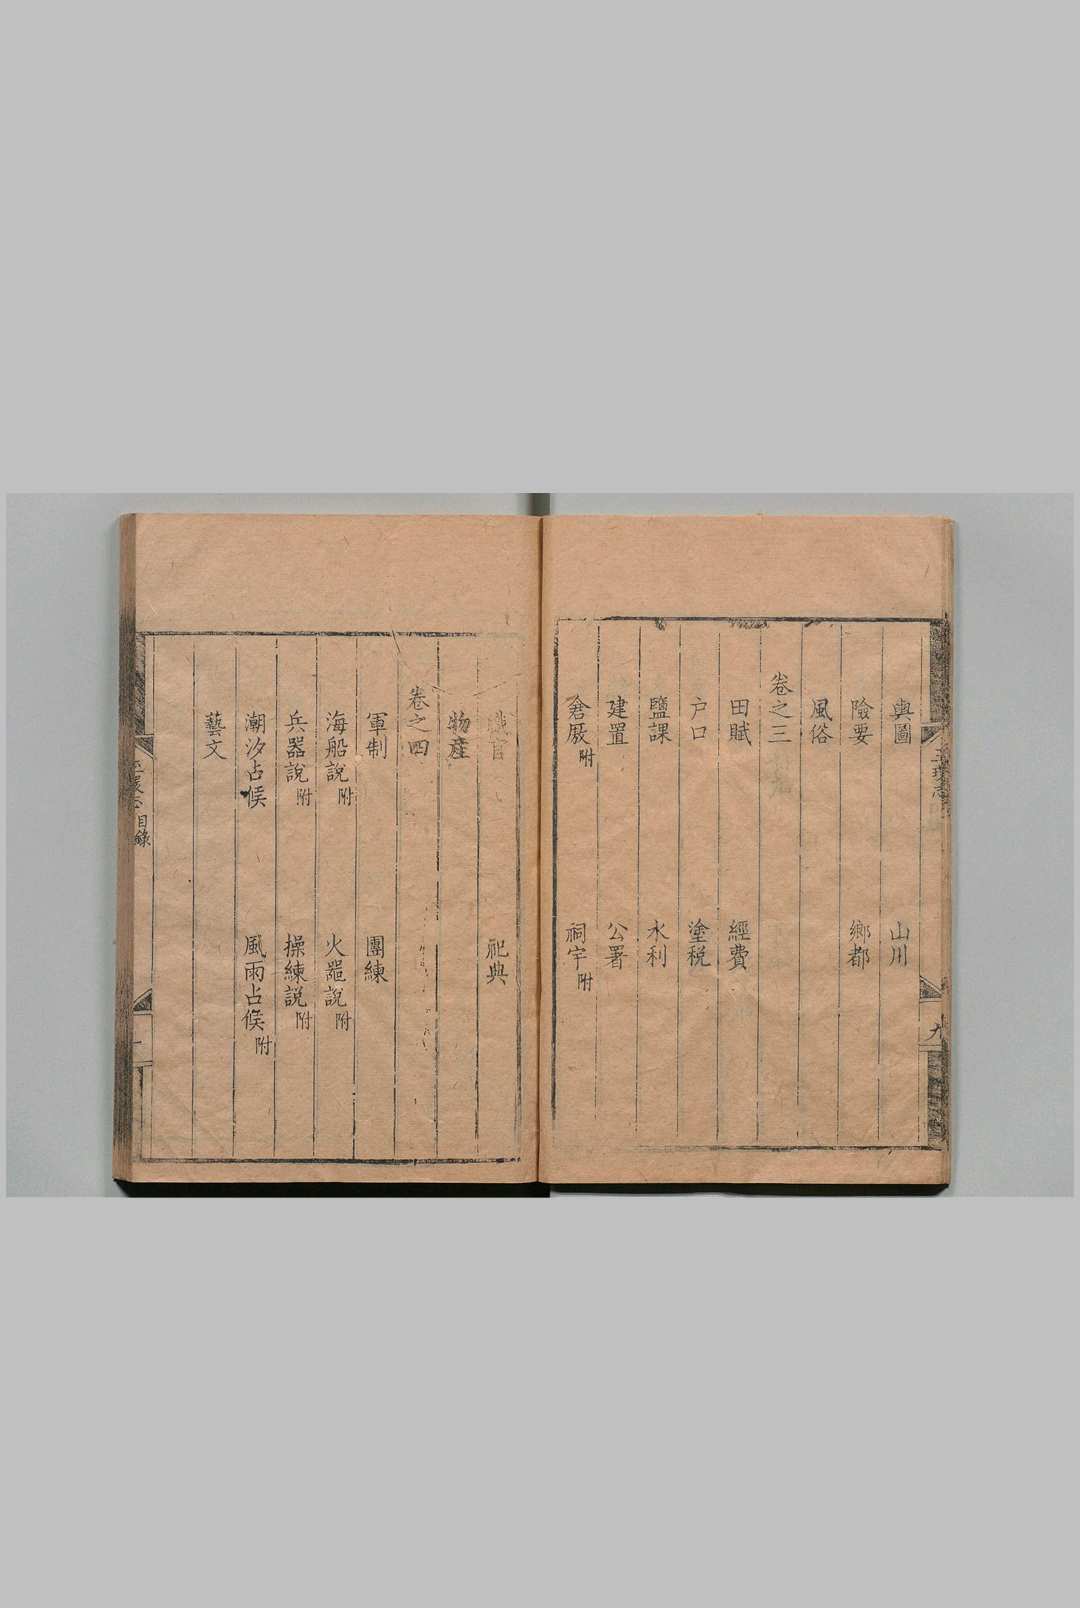 輿圖　山川
險要　鄉都
風俗
卷之三
田賦　經費
户口　塗税
鹽課　水利
建置　公署
倉厫附　祠宇附
職官　祀典
物產
卷之四
軍制　團練
海船說附　火器說附
兵器說附　操練說附
潮汐占候　風雨占候附
藝文
玉環志　目錄